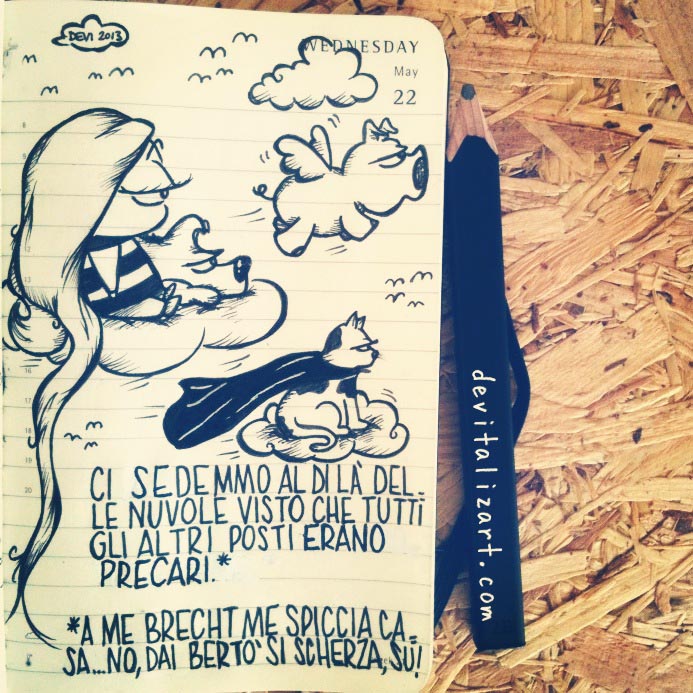 DEVI 2013
WEDNESDAY
May
22
CI SEDEMMO AL DI LÀ DEL-
LE NUVOLE VISTO CHE TUTTI
GLI ALTRI POSTI ERANO
PRECARI.*
*A ME BRECHT ME SPICCIA CA-
SA...NO, DAI BERTO' SI SCHERZA, SÙ!
devitalizart.com